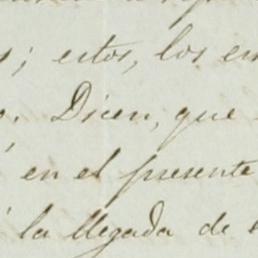 s; estos, los en
o. Dicen, que
en el presente
la llegada de s